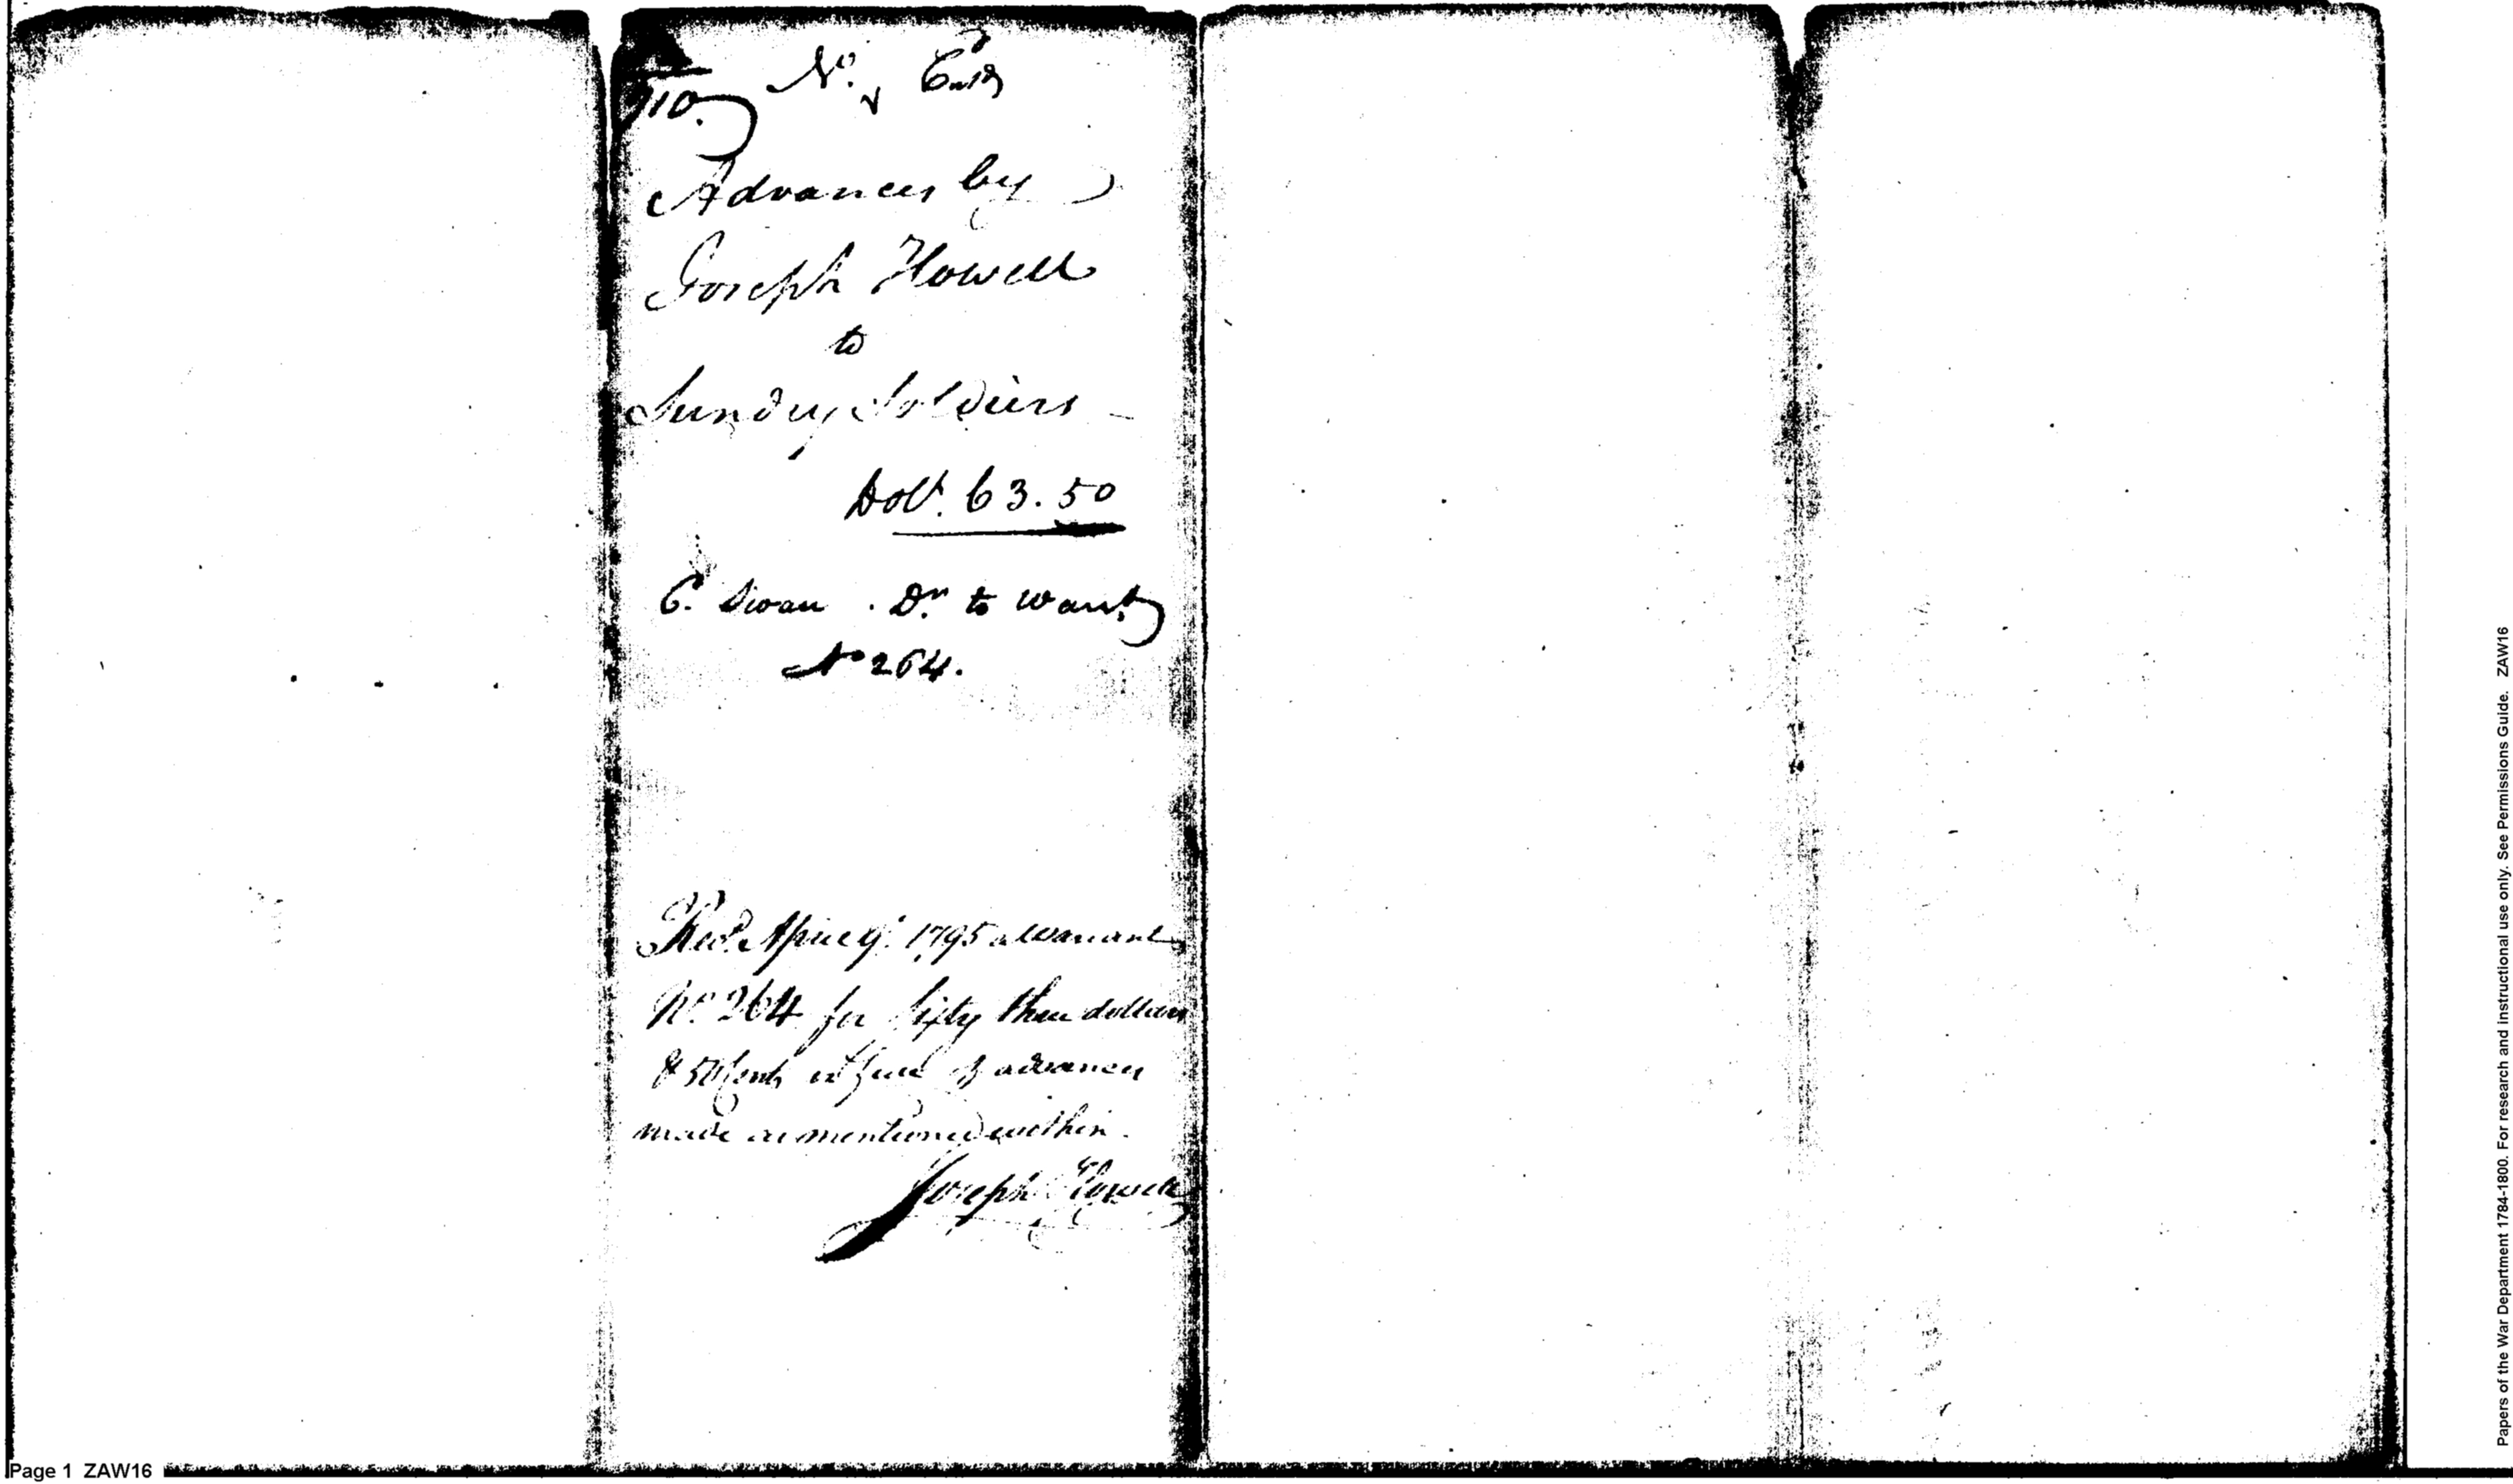 910.
No. Entd
Advances by
Joseph Howell
to
Sundry Soldiers -
Dolls. 63.50
C. Swan . Dr. to warrt
No 264.
Recd. April 9. 1795 a Warrant
No. 264 for Sixty three dollars
& 50 Cents in full of advances
made as mentioned within.
Joseph Howell
Page 1 ZAW16
Papers of the War Department 1784-1800. For research and instructional use only. See Permissions Guide. ZAW16